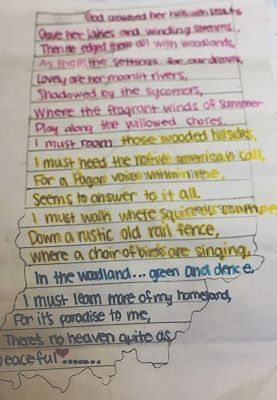 God crowned her hills with beauty
Gave her lakes and winding streams,
Then He edged them all with woodlands,
As them the settings for our dreams,
Lovely are her moonlit rivers,
Shadowed by the sycamors,
Where the fragrant winds of summer
Play along the willowed shores.
I must roam those wooded hillsides,
I must heed the native american call,
For a Pagan voice within me,
Seems to answer to it all.
I must walk where squirrels scamper
Down a rustic old rail fence,
Where a choir of birds are singing,
In the woodland... green and dence.
I must learn more of my homeland,
For it's paradise to me,
There's no heaven quite as
peaceful.......